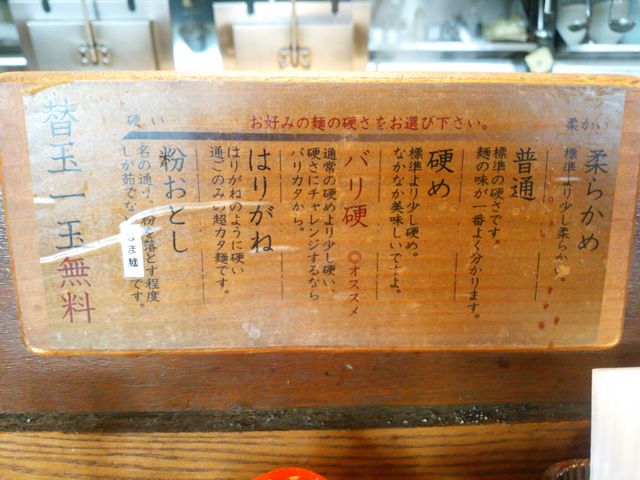 柔かい
お好みの麺の硬さをお選び下さい。
硬い
柔らかめ
標準より少し柔らかい。
普通
標準の硬さです。
麺の味が一番よく分かります。
硬め
標準より少し硬め。
なかなか美味しいですよ。
バリ硬 ◎オススメ
通常の硬めより少し硬い、
硬さにチャレンジするなら
バリカタから。
はりがね
はりがねのように硬い
通ごのみの超カタ麺です。
粉おとし
名の通り、粉を落とす程度
しか茹でない
なま麺
です。
替玉一玉無料